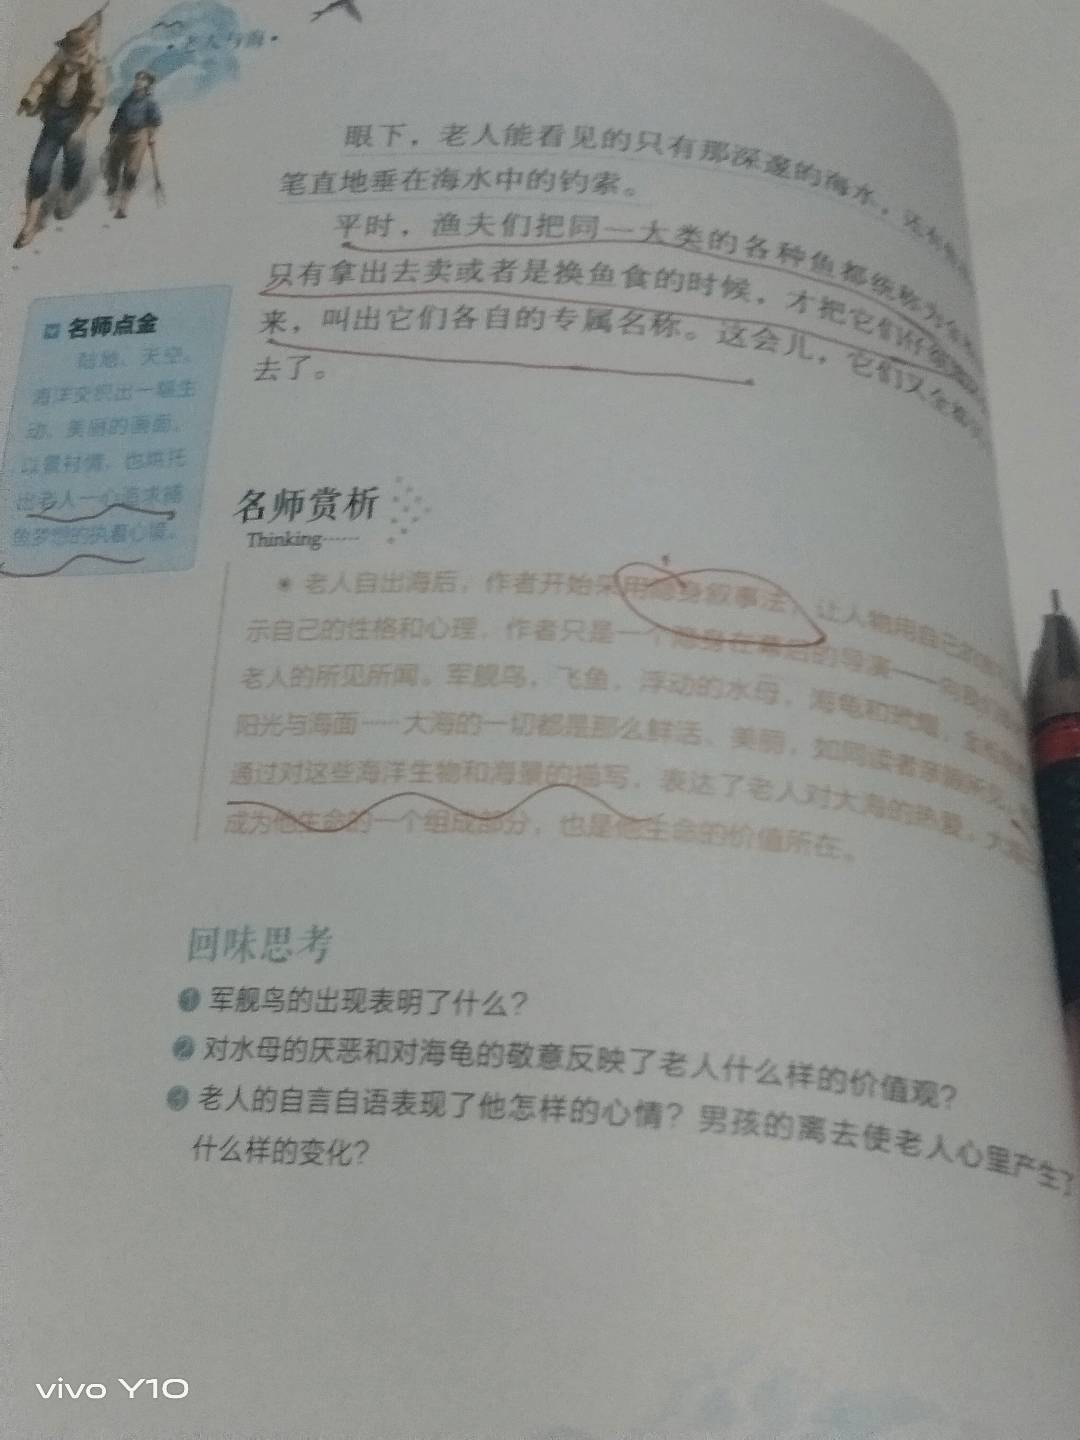 老人与海
眼下，老人能看见的只有那深邃的海水，还有
笔直地垂在海水中的钓索。
平时，渔夫们把同一大类的各种鱼都统称为
只有拿出去卖或者是换鱼食的时候，才把它们仔细
来，叫出它们各自的专属名称。这会儿，它们又全都
去了。
名师点金
陆地、天空、
海洋交织出一幅生
动、美丽的画面，
以景衬情，也烘托
出老人一心追求捕
鱼梦想的执着心境。
名师赏析
Thinking······
老人自出海后，作者开始采用隐身叙事法，让人物用自己的
示自己的性格和心理，作者只是一个隐身在幕后的导演——向我们
老人的所见所闻。军舰鸟，飞鱼，浮动的水母，海龟和
阳光与海面……大海的一切都是那么鲜活、美丽，如同读者亲眼所见。
通过对这些海洋生物和海景的描写，表达了老人对大海的热爱，大海
成为他生命的一个组成部分，也是他生命的价值所在。
回味思考
1 军舰鸟的出现表明了什么？
2 对水母的厌恶和对海龟的敬意反映了老人什么样的价值观？
3 老人的自言自语表现了他怎样的心情？男孩的离去使老人心里产生了
什么样的变化？
vivo Y10